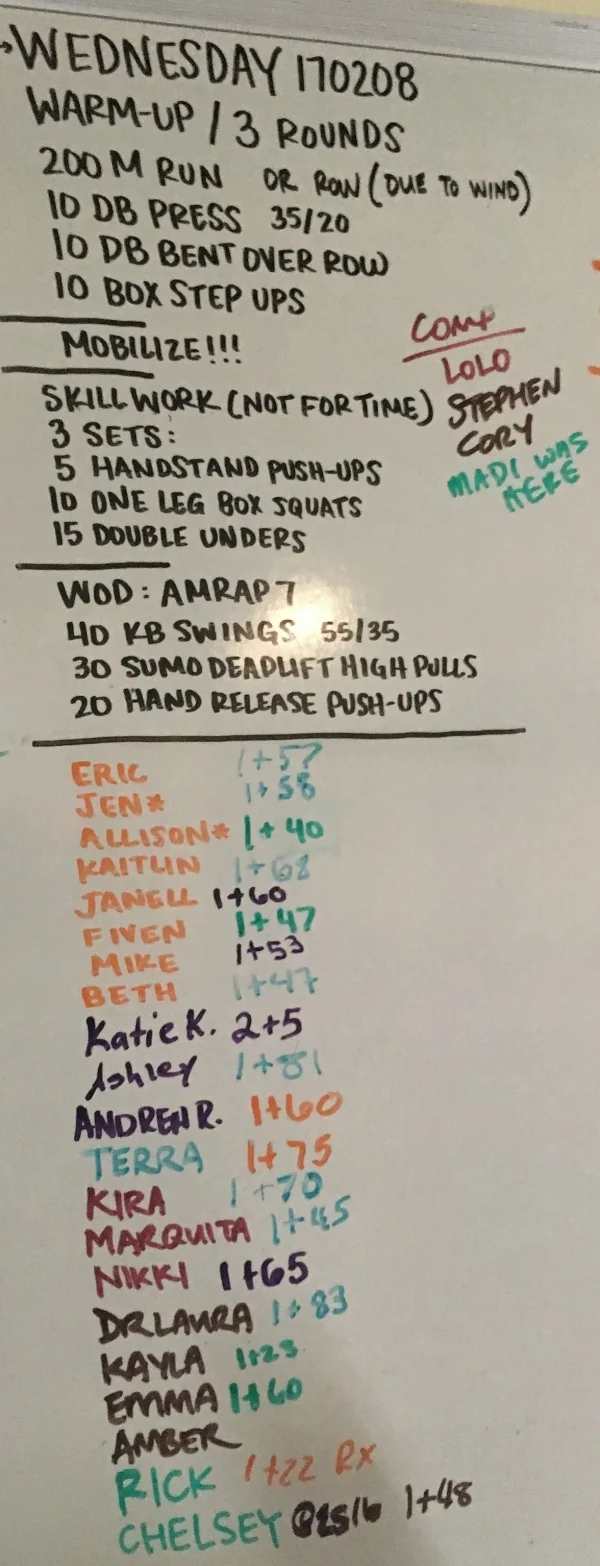 WEDNESDAY 170208
WARM-UP / 3 ROUNDS
200 M RUN OR ROW (DUE TO WIND)
10 DB PRESS 35/20
10 DB BENT OVER ROW
10 BOX STEP UPS
MOBILIZE!!!
COMP
LOLO
STEPHEN
CORY
MADI WAS
HERE
SKILL WORK (NOT FOR TIME)
3 SETS:
5 HANDSTAND PUSH-UPS
10 ONE LEG BOX SQUATS
15 DOUBLE UNDERS
WOD: AMRAP 7
40 KB SWINGS 55/35
30 SUMO DEADLIFT HIGH PULLS
20 HAND RELEASE PUSH-UPS
ERIC 1+57
JEN* 1+58
ALLISON* 1+40
KAITLIN 1+68
JANELL 1+60
FIVEN 1+47
MIKE 1+53
BETH 1+47
Katie K. 2+5
Ashley 1+81
ANDREW R. 1+60
TERRA 1+75
KIRA 1+70
MARQUITA 1+45
NIKKI 1+65
DR LAURA 1+83
KAYLA 1+23
EMMA 1+60
AMBER
RICK 1+22 RX
CHELSEY 1+48